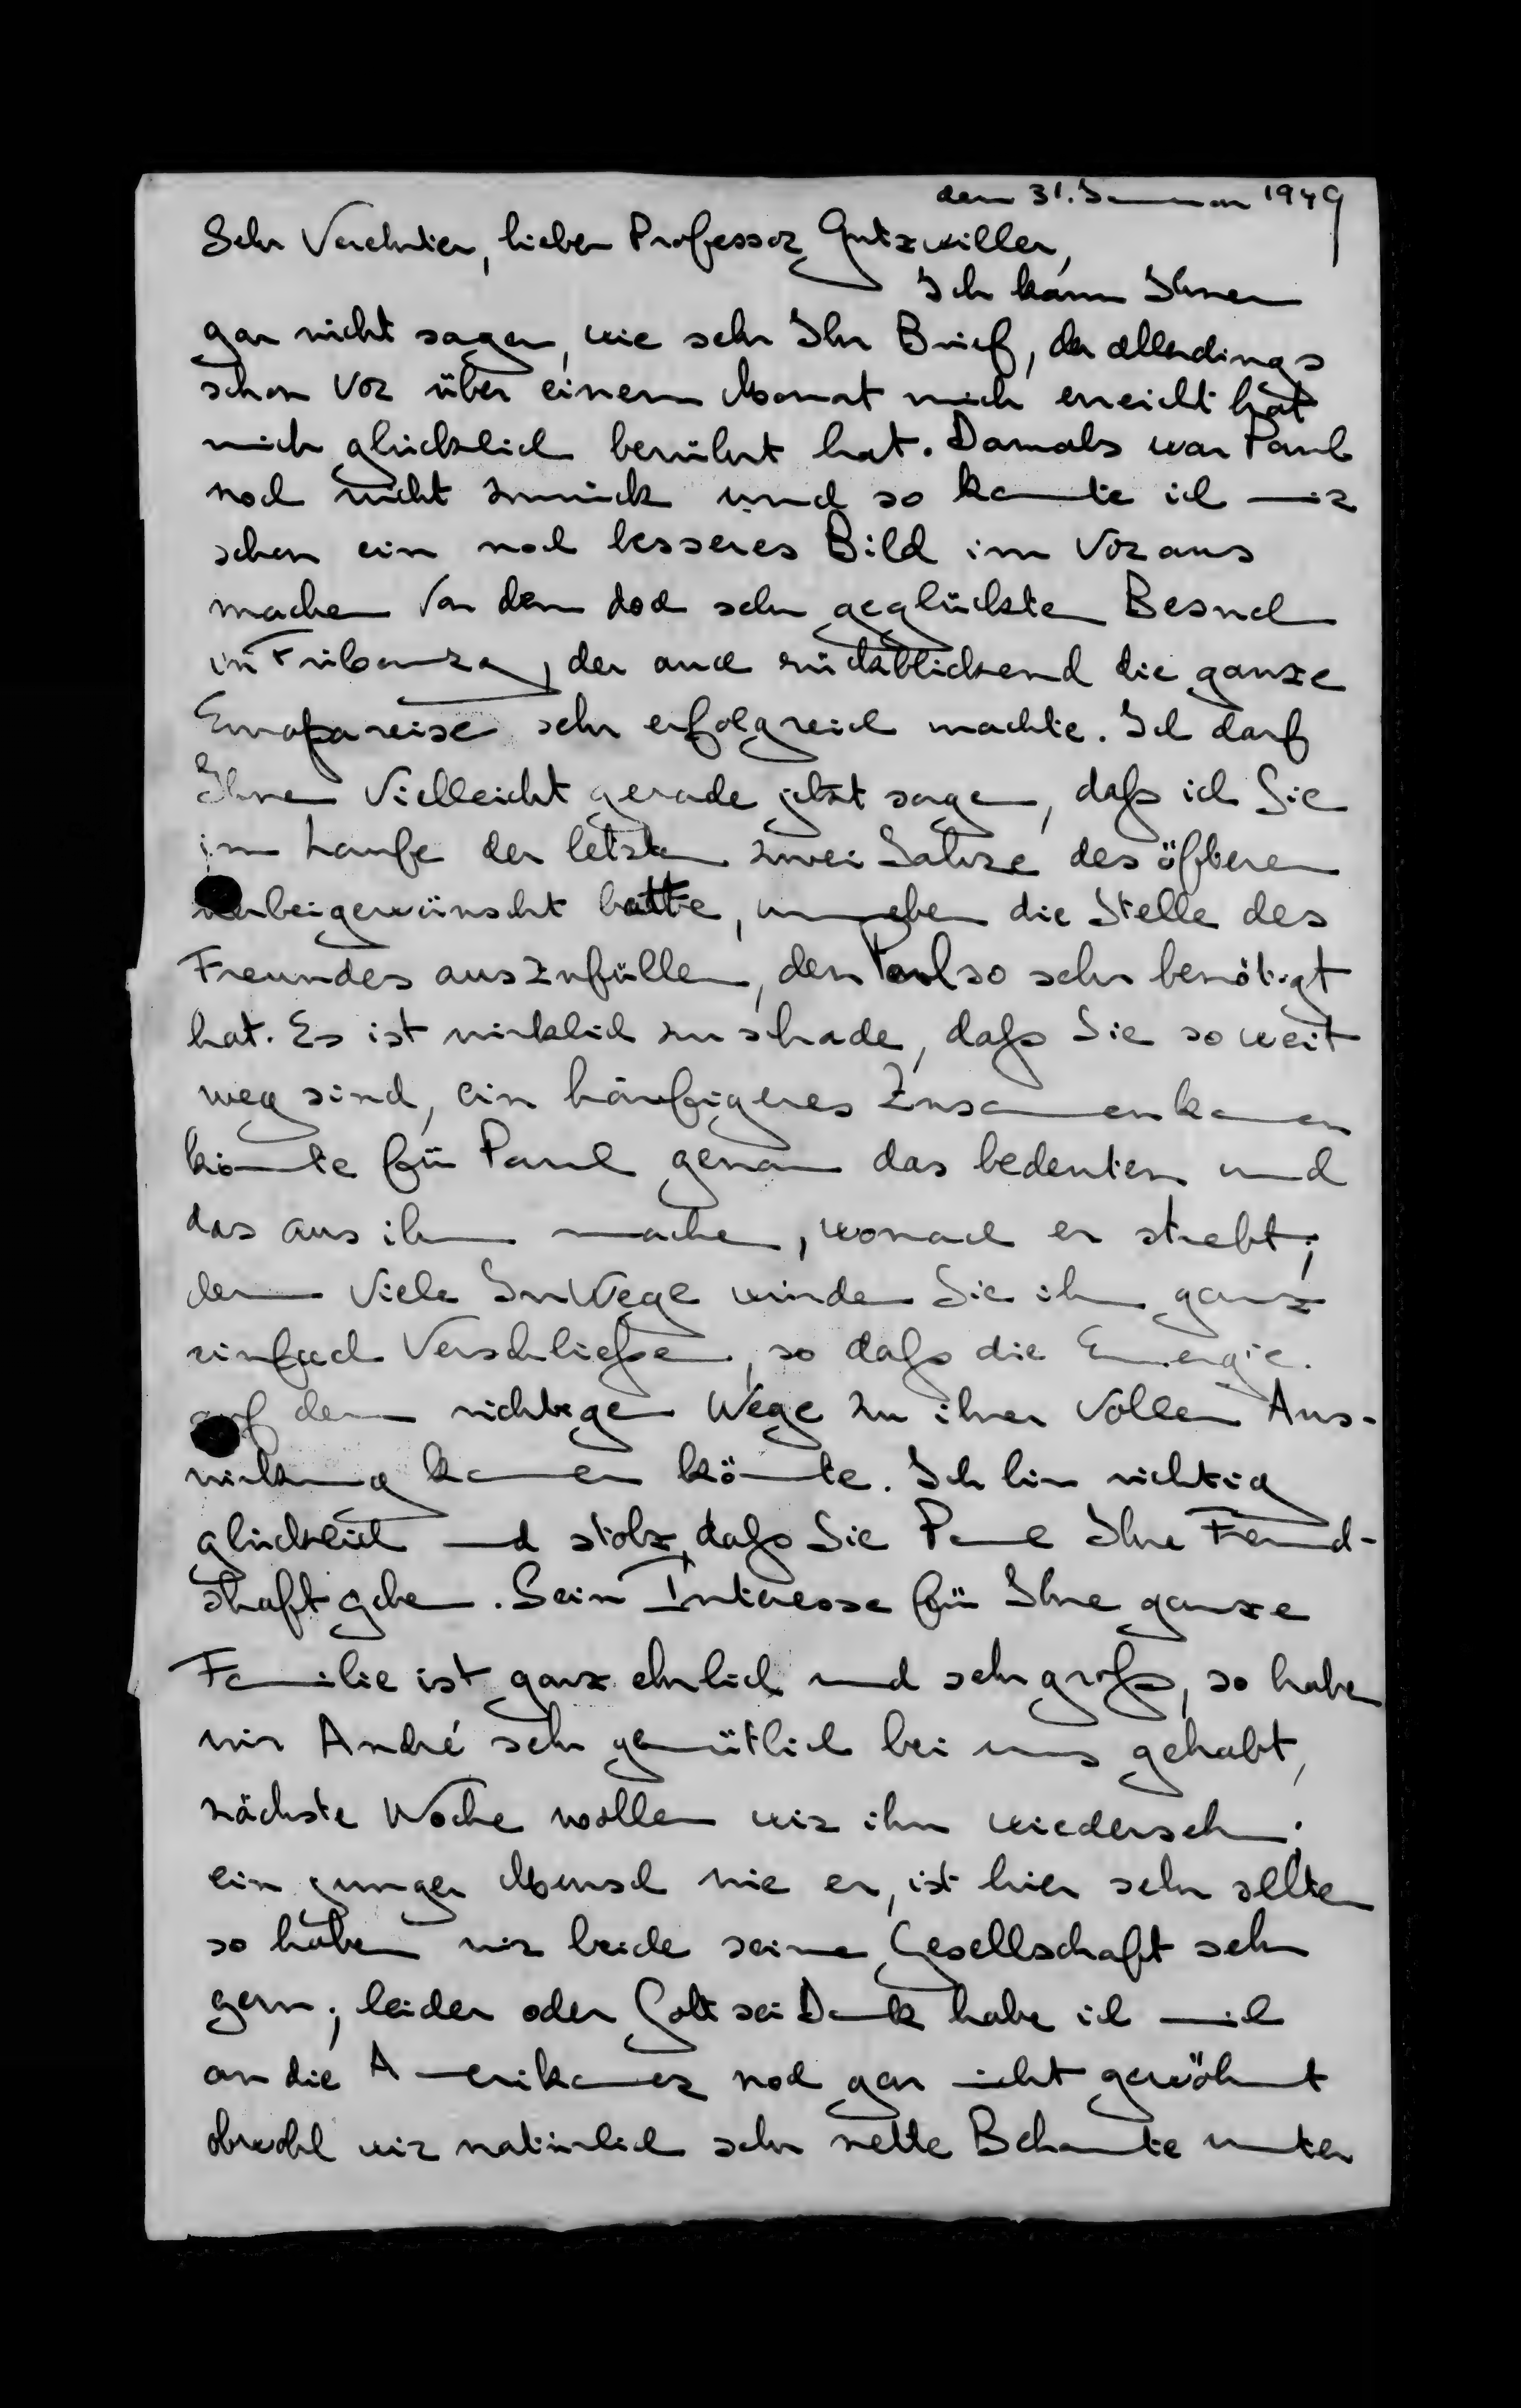 den 31. Januar 1949
Sehr Verehrter, lieber Professor Gutzwiller,
Ich kann Ihnen
gar nicht sagen, wie sehr Ihr Brief, der allerdings
schon vor über einem Monat mich erreicht hat
mich glücklich berührt hat. Damals war Paul
noch nicht zurück und so konnte ich mir
schon ein noch besseres Bild im Voraus
machen von dem doch sehr geglückten Besuch
in Fribourg, der auch rückblickend die ganze
Europareise sehr erfolgreich machte. Ich darf
Ihnen vielleicht gerade jetzt sagen, daß ich Sie
im Laufe der letzten zwei Jahre des öfteren
herbeigewünscht hatte, um eben die Stelle des
Freundes auszufüllen, den Paul so sehr benötigt
hat. Es ist wirklich zu schade, daß Sie so weit
weg sind, ein häufigeres Zusammenkommen
könnte für Paul genau das bedeuten und
das aus ihm machen, wonach er strebt;
denn viele Irrwege würden Sie ihm ganz
einfach verschließen, so daß die Energie
auf dem richtigen Wege zu ihrer vollen Aus-
wirkung kommen könnte. Ich bin richtig
glücklich und stolz, daß Sie Paul Ihre Freund-
schaft geben. Sein Interesse für Ihre ganze
Familie ist ganz ehrlich und sehr groß, so haben
wir André sehr gemütlich bei uns gehabt,
nächste Woche wollen wir ihn wiedersehn;
ein junger Mensch wie er, ist hier sehr selten
so haben wir beide seine Gesellschaft sehr
gern; leider oder Gott sei Dank habe ich mich
an die Amerikaner noch gar nicht gewöhnt
obwohl wir natürlich sehr nette Bekannte unter